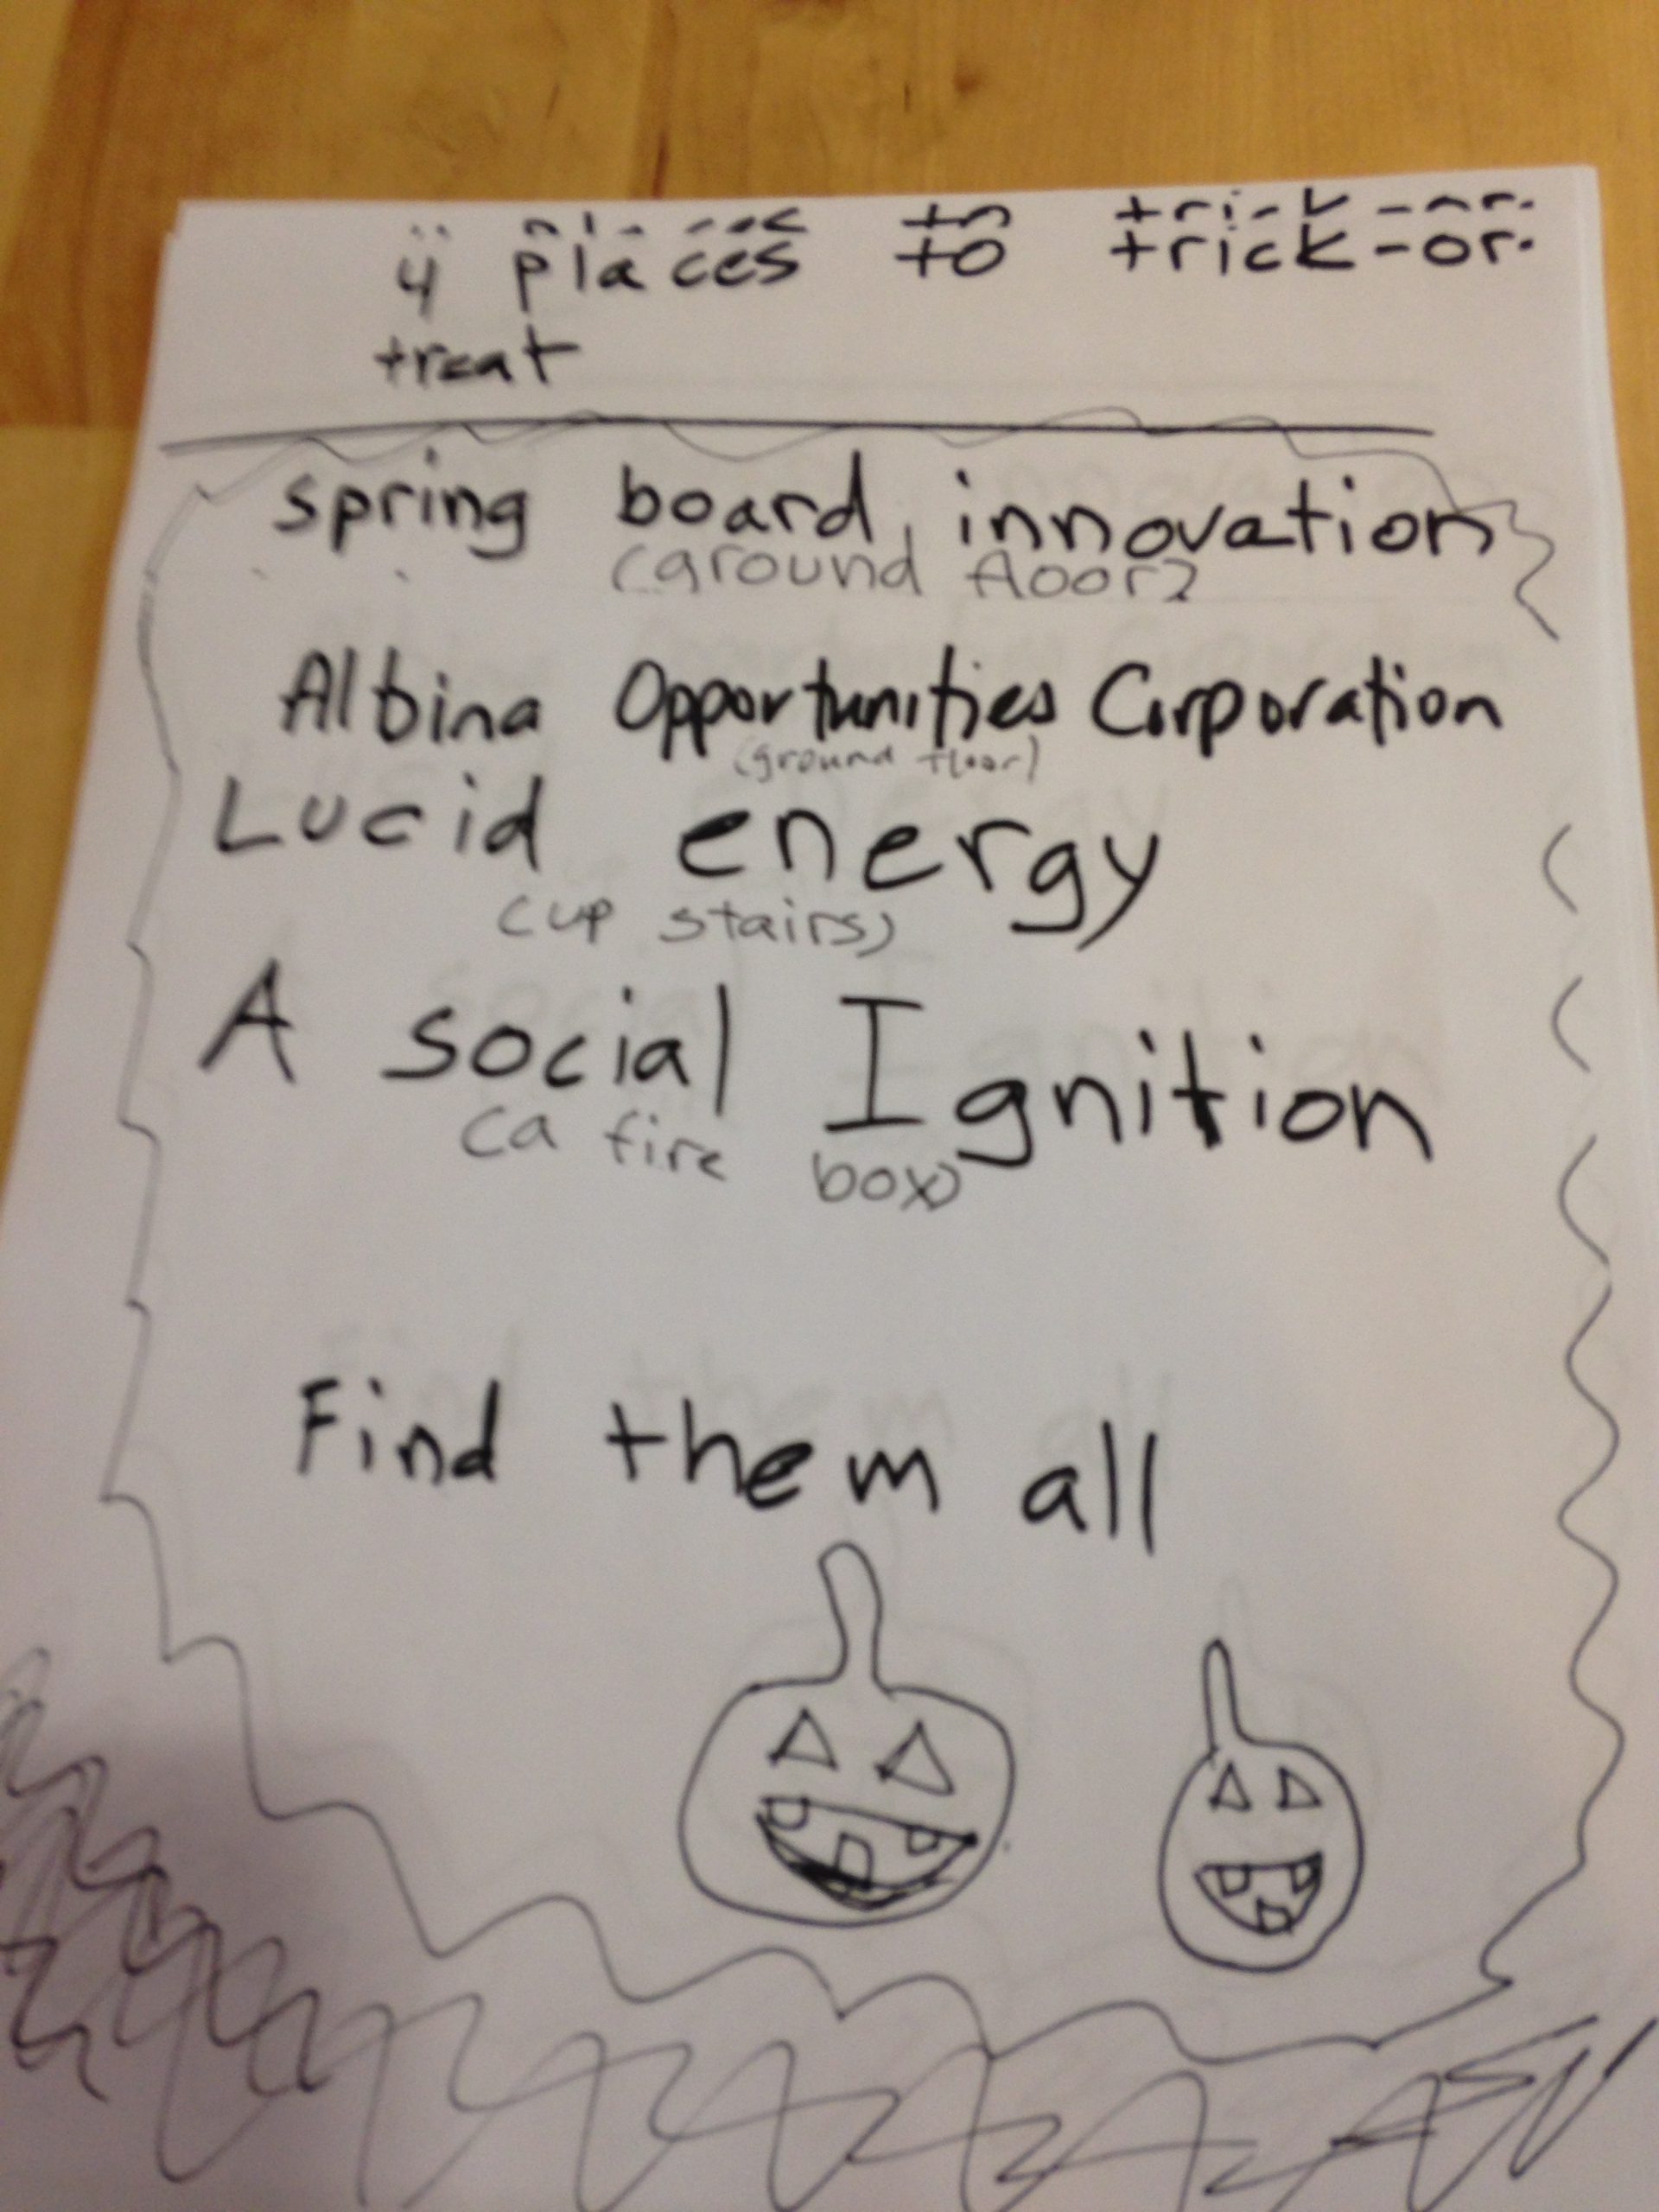 4 places to trick-or-
treat
spring board innovation
(ground floor)
Albina Opportunities Corporation
(ground floor)
Lucid energy
(up stairs)
A social Ignition
(a fire box)
Find them all